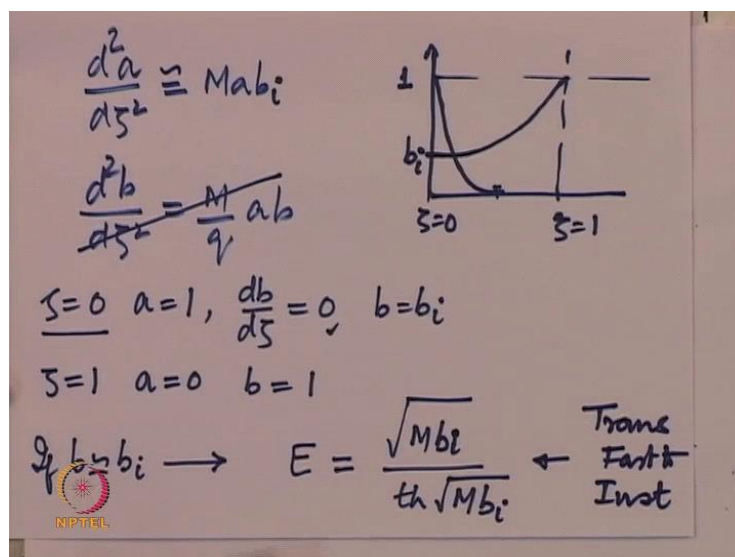 d²a/dζ² ≅ Mabᵢ
d²b/dζ² = M/q ab
1
bᵢ
ζ=0 ζ=1
ζ=0 a=1, db/dζ = 0 b=bᵢ
ζ=1 a=0 b=1
If b≃bᵢ → E = √Mbᵢ / th √Mbᵢ ← Trans
Fast to
Inst
NPTEL